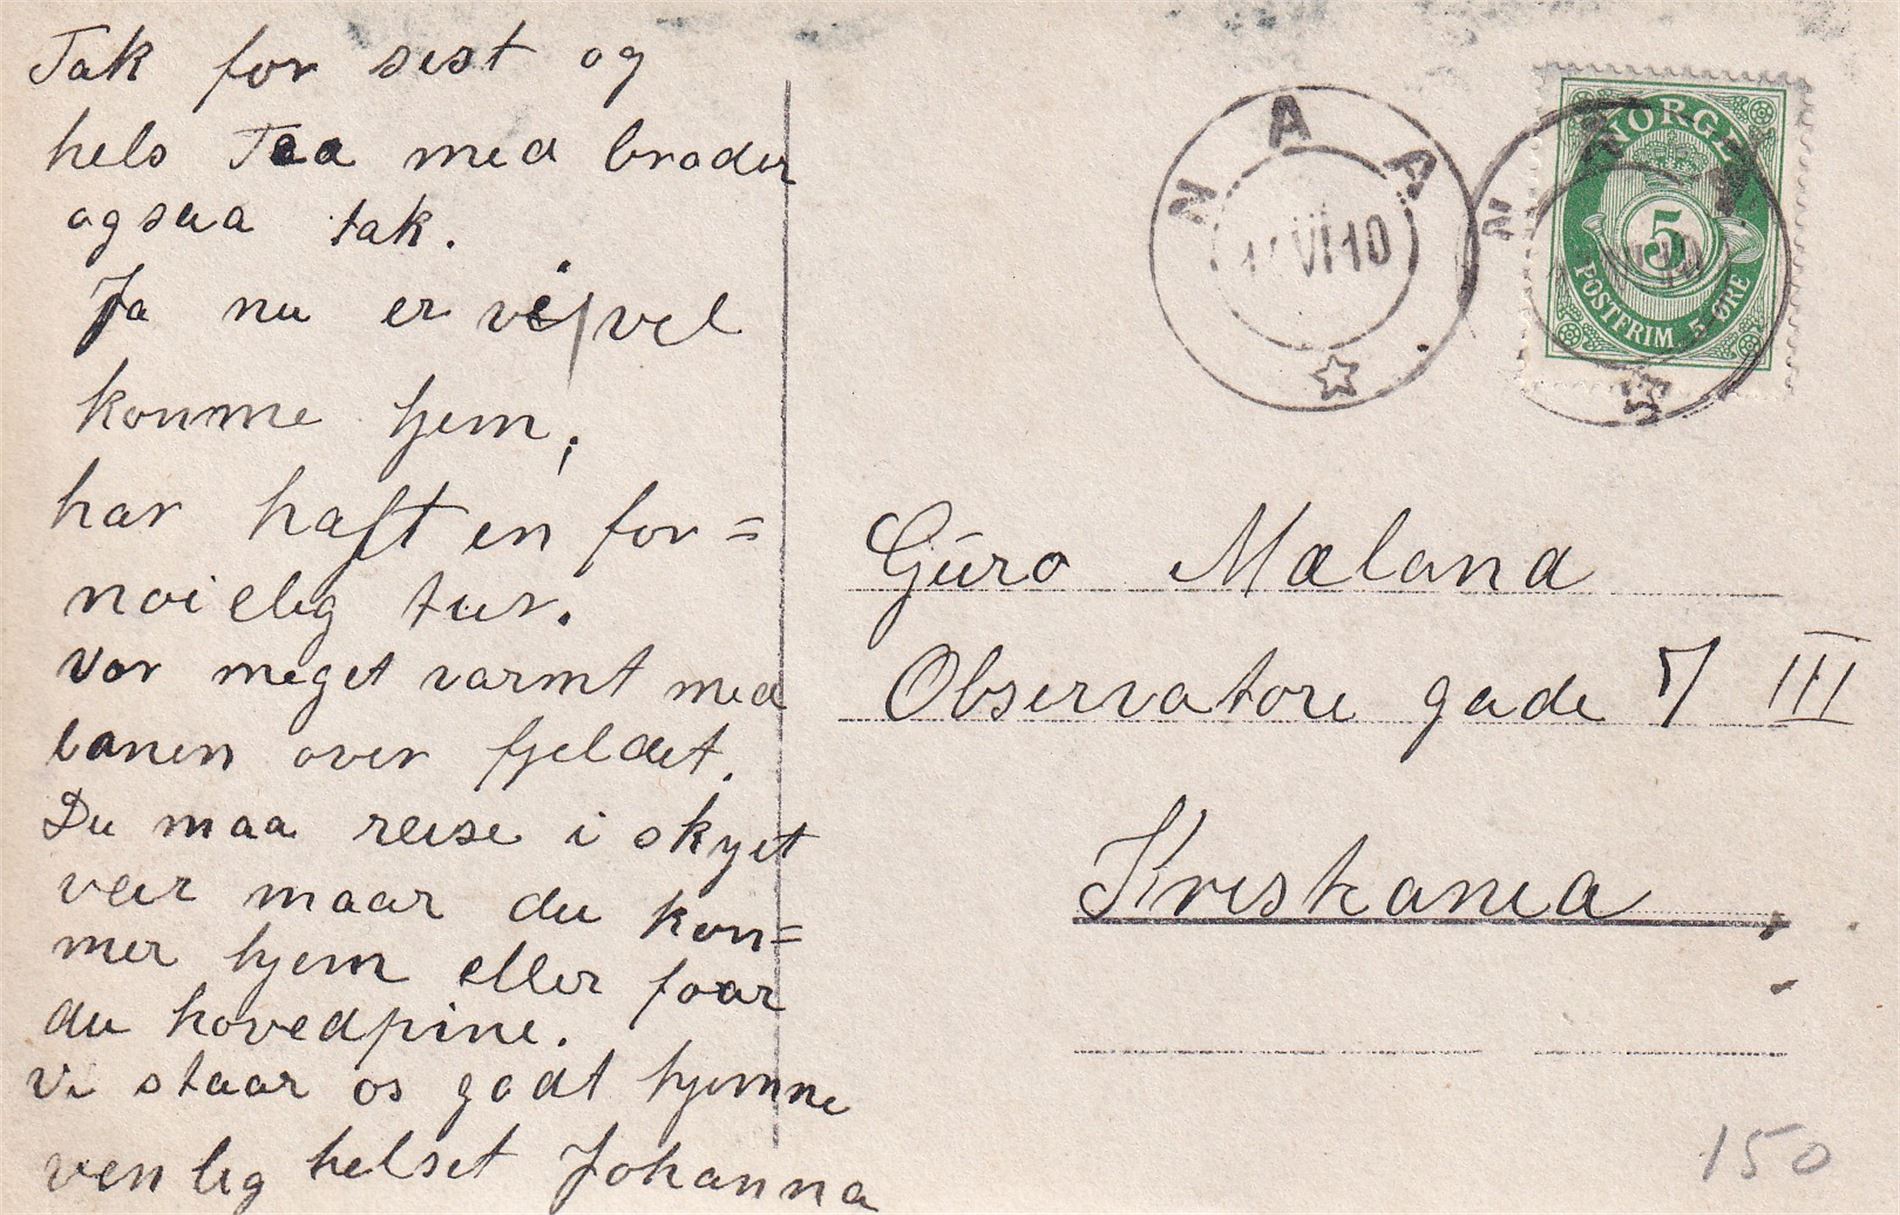 Tak for sist og
hels Tea med broder
ogsaa tak.
Ja nu er vi vel
komme hjem,
har haft en for=
noielig tur.
Var meget varmt med
banen over fjeldet.
Du maa reise i skyet
veir naar du kom=
mer hjem eller faar
du hovedpine.
vi staar os godt hjemme
venlig helset Johanna
NAA
VI 10
NORGE
5
POSTFRIM. 5 ØRE
Guro Mæland
Observatore gade 7 III
Kristiania
150